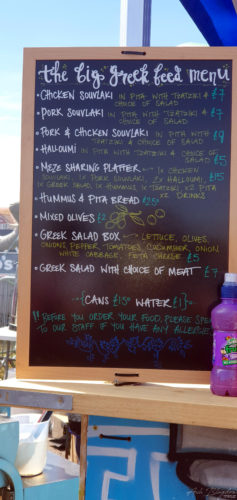 the big greek feed menu
• CHICKEN SOUVLAKI IN PITA WITH TZATZIKI & £7
CHOICE OF SALAD
• PORK SOUVLAKI IN PITA WITH TZATZIKI & £7
CHOICE OF SALAD
• PORK & CHICKEN SOUVLAKI IN PITA WITH £9
TZATZIKI & CHOICE OF SALAD
• HALOUMI IN PITA WITH TZATZIKI & CHOICE OF
SALAD £5
• MEZE SHARING PLATTER 1x CHICKEN
SOUVLAKI, 1x PORK SOUVLAKI, 2x HALLOUMI, £15
1x GREEK SALAD, 1x HUMMUS, 1x TZATZIKI x2 PITA
x2 DRINKS
• HUMMUS & PITA BREAD £2.50
• MIXED OLIVES £2
• GREEK SALAD BOX LETTUCE, OLIVES,
ONIONS, PEPPER, TOMATOES, CUCUMBER, ONION
WHITE CABBAGE, FETA CHEESE £5
• GREEK SALAD WITH CHOICE OF MEAT £7
{CANS £1.50 WATER £1}
!! BEFORE YOU ORDER YOUR FOOD, PLEASE SPE
TO OUR STAFF IF YOU HAVE ANY ALLERGIE